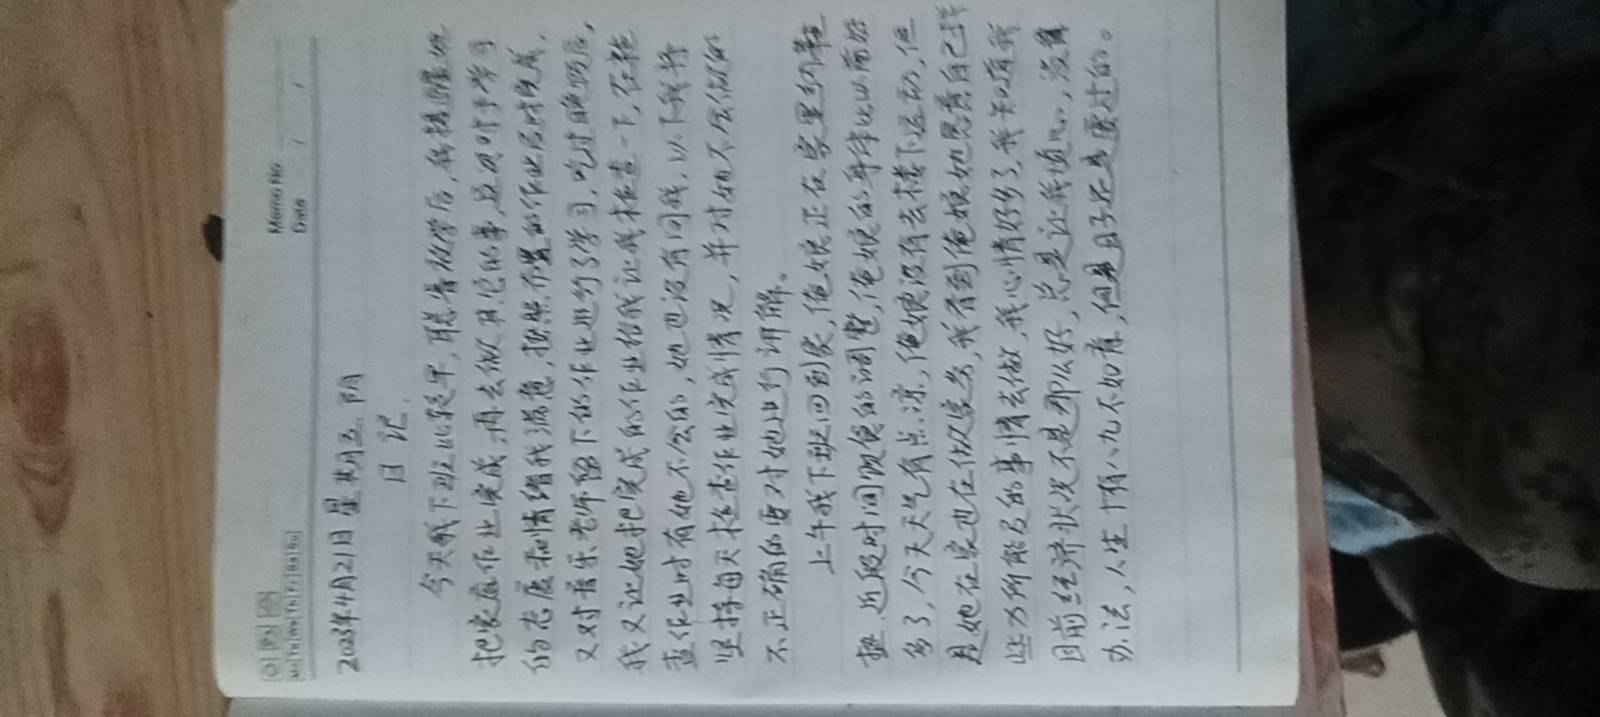 Memo No
Date / /
Mo Tu We Th Fr Sa Su
2023年4月21日 星期五 阴
日记
今天我下班比较早,聪青放学后,我提醒她
把家庭作业完成,再去做其它的事,她对于学习
的态度和情绪我满意,按照布置的作业及时完成,
又对音乐老师留下的作业进行了学习,吃过晚饭后,
我又让她把完成的作业给我让我检查一下,在检
查作业时有她不会的,她也没有问我,以下我将
坚持每天检查作业完成情况,并对她不会做的
不正确的要对她进行讲解。
上午我下班回到家,俺娘正在家里纳鞋
垫,近段时间饮食的调整,俺娘的身体比以前好
多了,今天天气有点凉,俺娘没有去楼下运动,但
是她在家也在做家务,我看到俺娘她愿意自己找
些力所能及的事情去做,我心情好多了,我知道我
目前经济状况不是那么好,总是让我烦心,没有
办法,人生十有八九不如意,但是日子还是要过的。